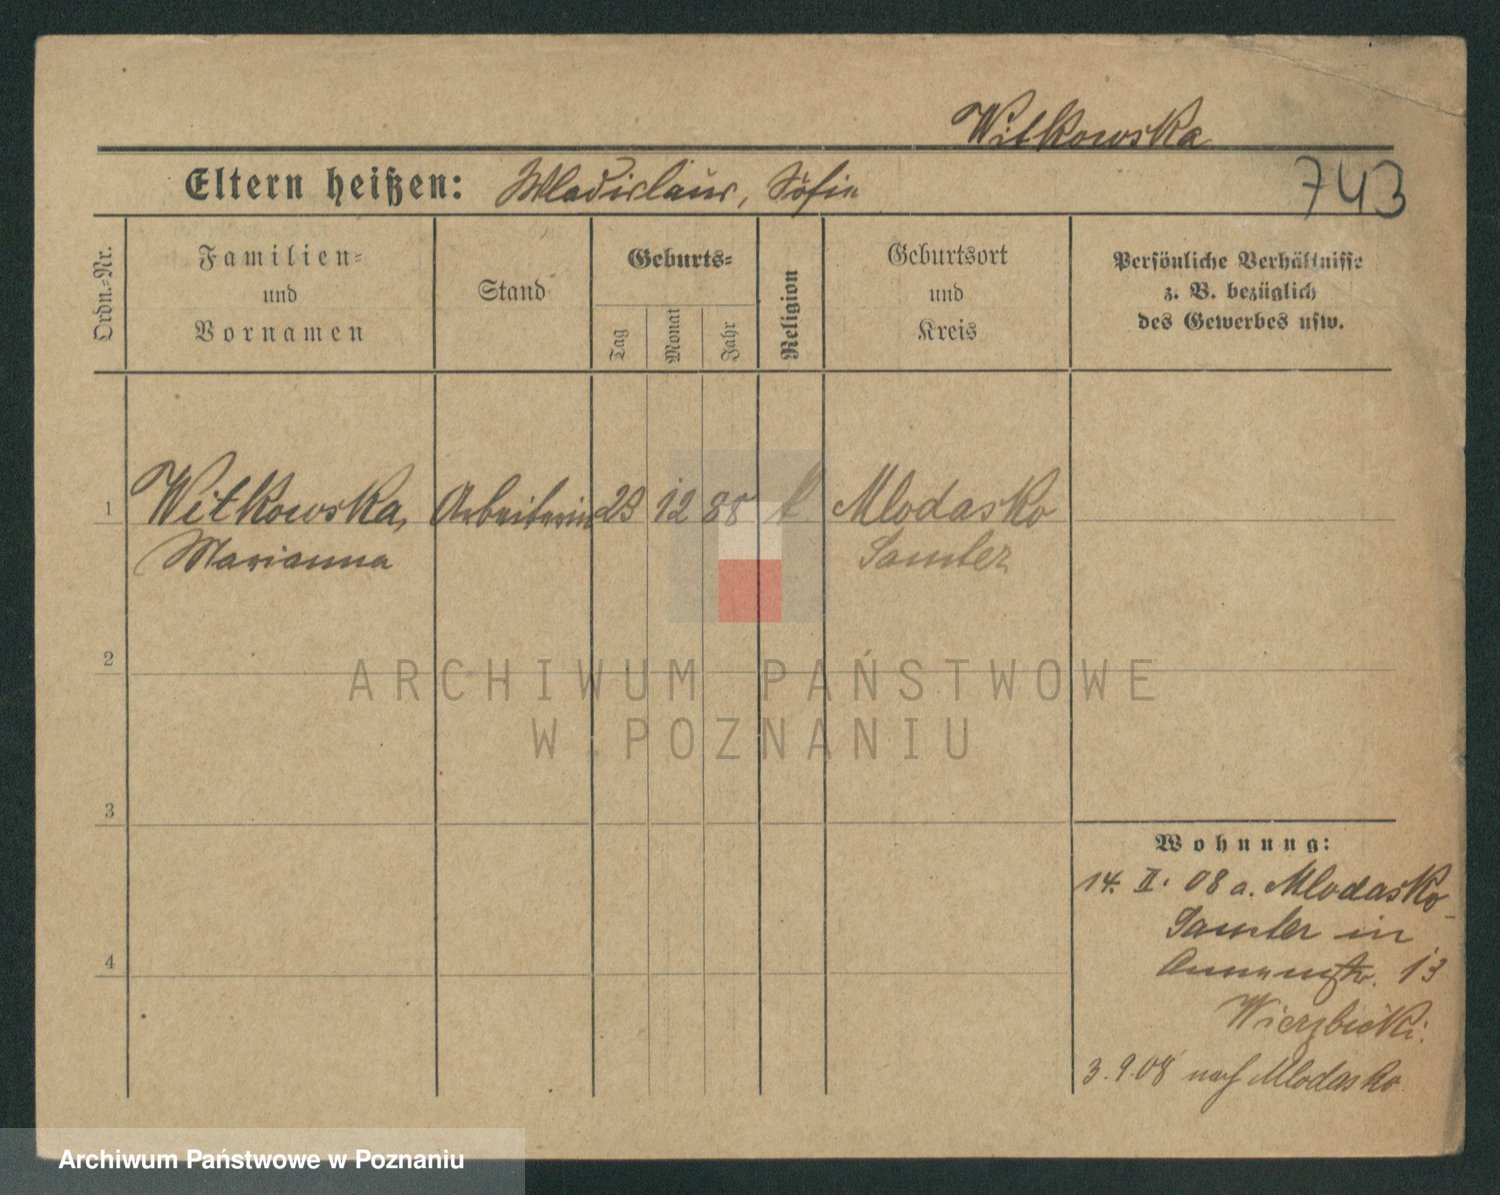 Witkowska
Eltern heißen: Wladislaus, Sofia
743
Ordn.-Nr.
Familien-
und
Vornamen
Stand
Geburts-
Tag
Monat
Jahr
Religion
Geburtsort
und
Kreis
Persönliche Verhältnisse
z. B. bezüglich
des Gewerbes usw.
1 Witkowska, Arbeiterin 23 12 88 k. Mlodasko
Marianna Samter
2
ARCHIWUM PAŃSTWOWE
W POZNANIU
3
Wohnung:
14. II. 08 a. Mlodasko
Samter in
4
Annenstr. 13
Wierzbicki.
3.9.08 nach Mlodasko
Archiwum Państwowe w Poznaniu